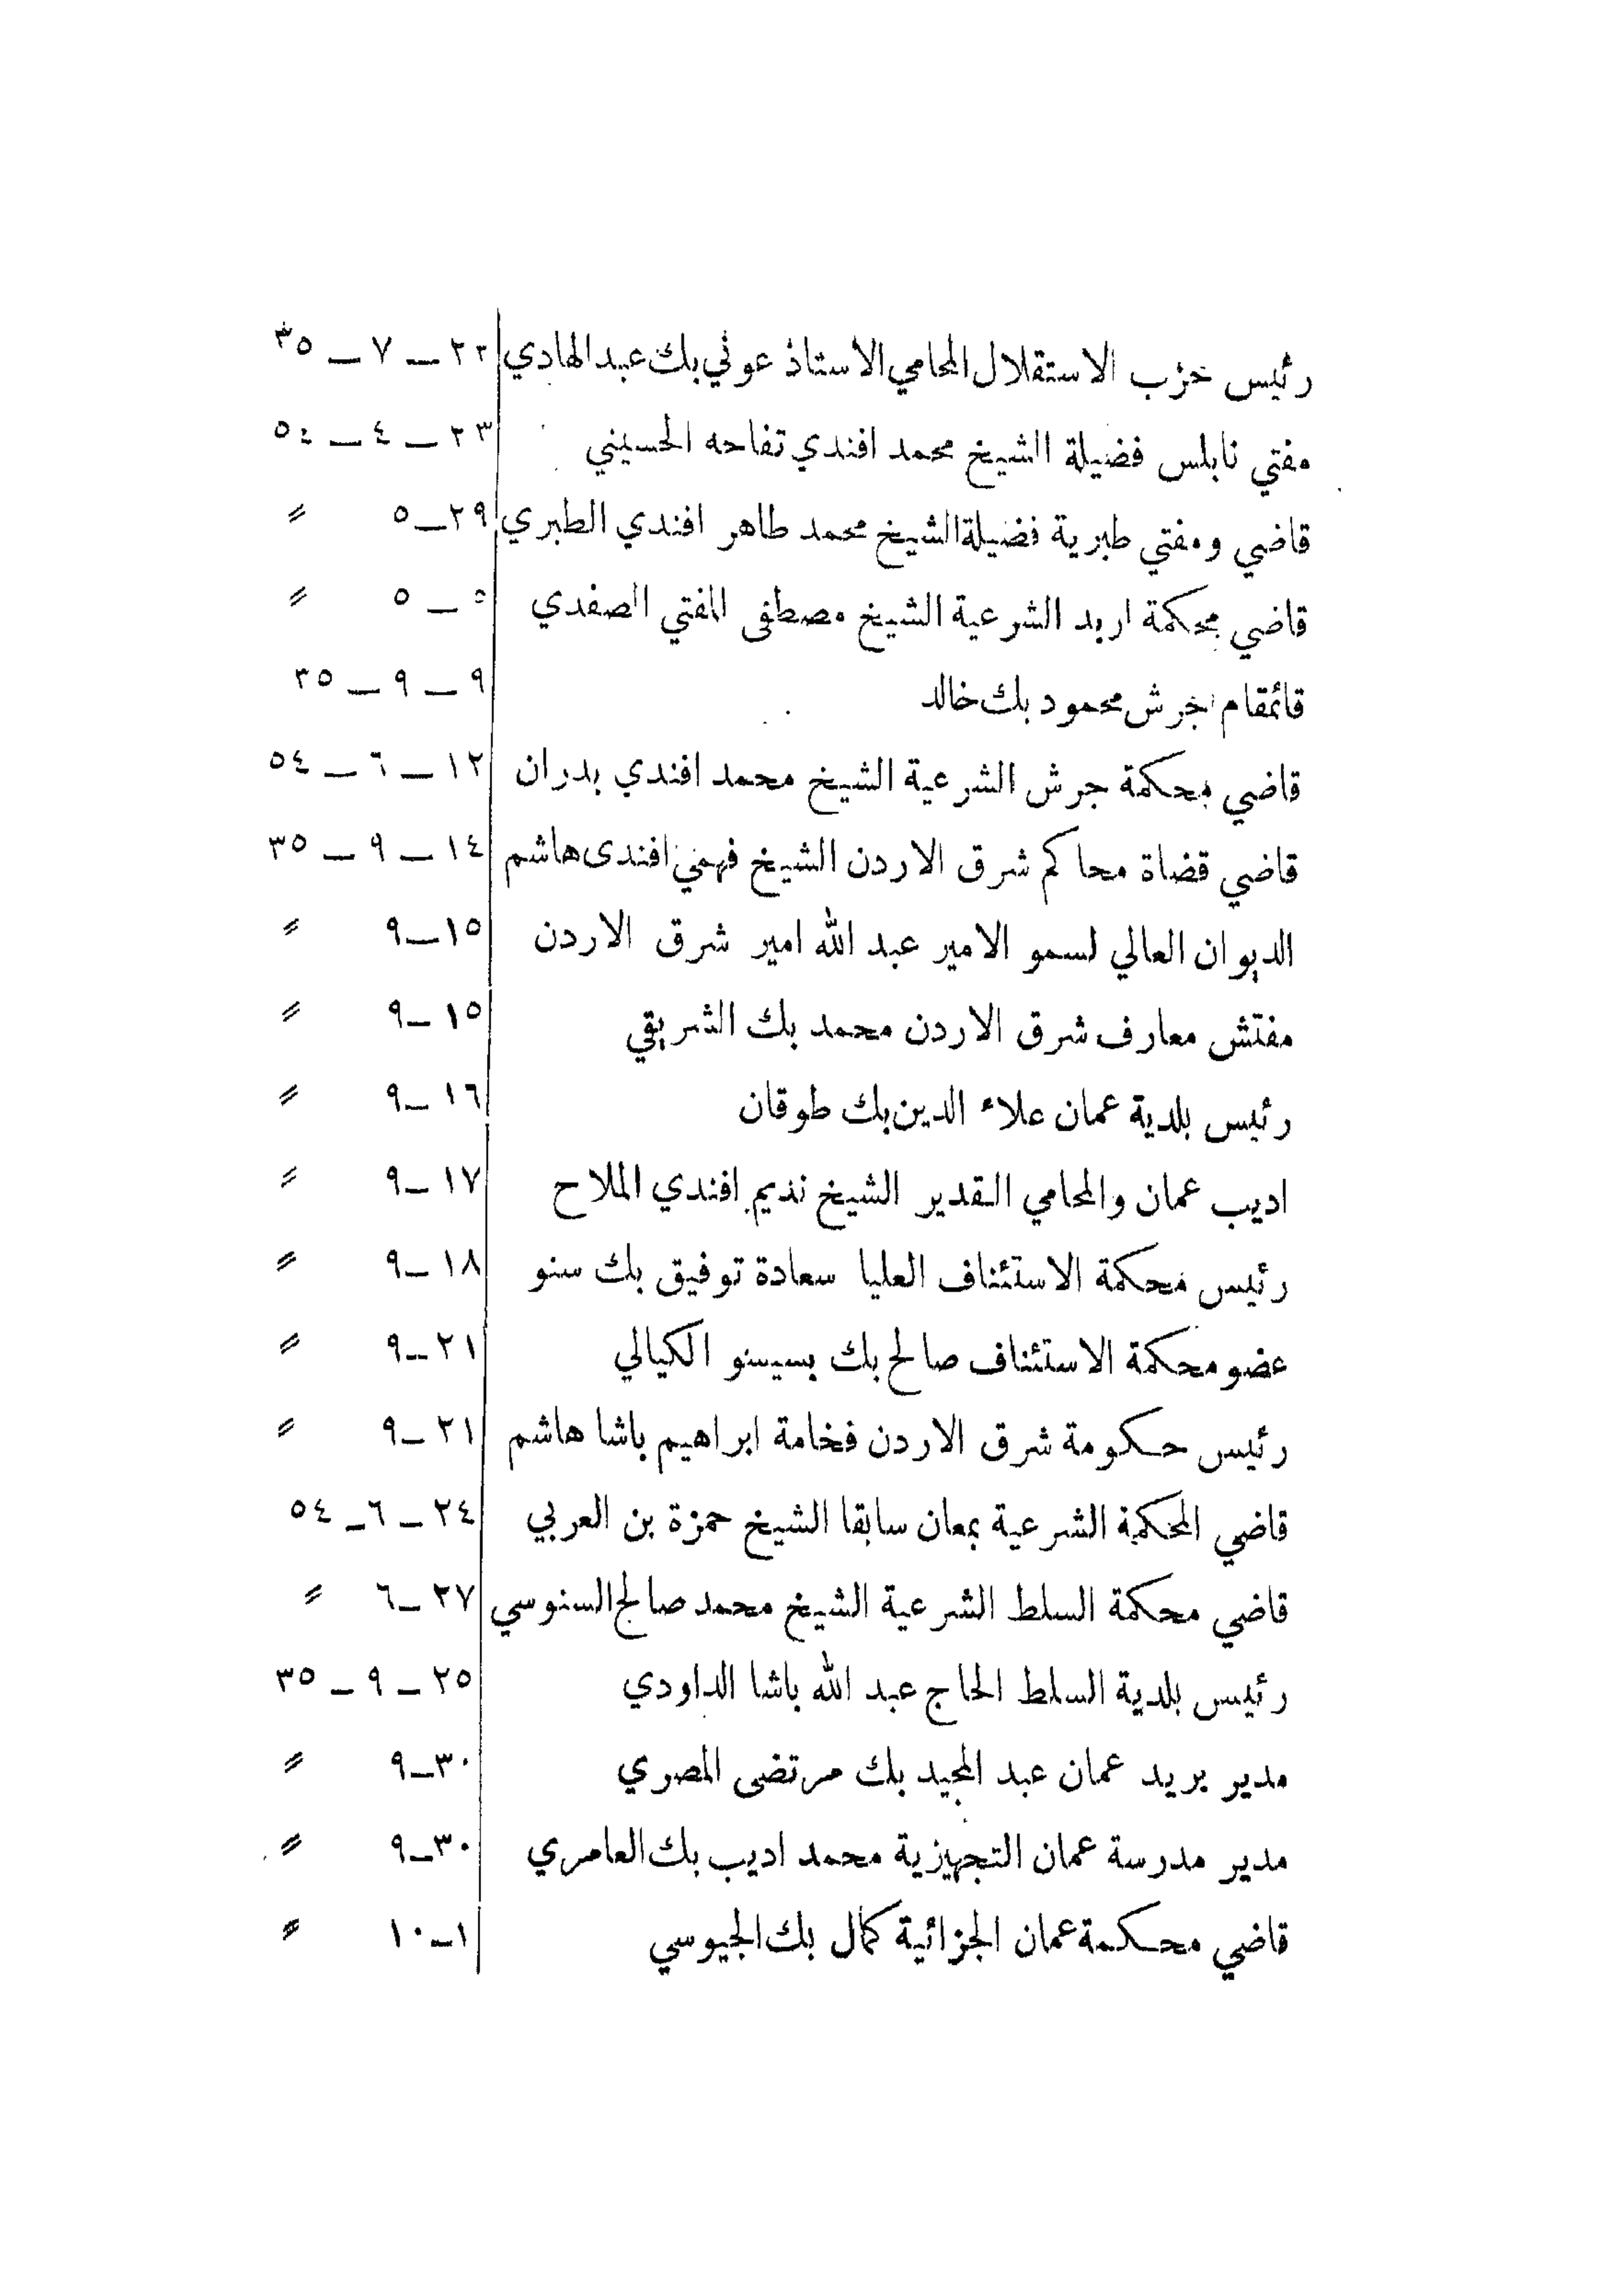 رئيس حزب الاستقلال المحامي الاستاذ عوني بك عبد الهادي ٢٢ — ٧ — ٣٥
مفتي نابلس فضيلة الشيخ محمد افندي تفاحه الحسيني ٢٣ — ٤ — ٥٤
قاضي ومفتي طبرية فضيلة الشيخ محمد طاهر افندي الطبري ٢٩—٥ 〃
قاضي محكمة اربد الشرعية الشيخ مصطفى المفتي الصفدي ٥ — ٥ 〃
قائمقام جرش محمود بك خالد ٩ — ٩ — ٣٥
قاضي محكمة جرش الشرعية الشيخ محمد افندي بدران ١٢ — ٦ — ٥٤
قاضي قضاة محاكم شرق الاردن الشيخ فهمي افندى هاشم ١٤ — ٩ — ٣٥
الديوان العالي لسمو الامير عبد الله امير شرق الاردن ١٥—٩ 〃
مفتش معارف شرق الاردن محمد بك الشريقي ١٥—٩ 〃
رئيس بلدية عمان علاء الدين بك طوقان ١٦—٩ 〃
اديب عمان والمحامي القدير الشيخ نديم افندي الملاح ١٧—٩ 〃
رئيس محكمة الاستئناف العليا سعادة توفيق بك سنو ١٨—٩ 〃
عضو محكمة الاستئناف صالح بك بسيسو الكيالي ٢١—٩ 〃
رئيس حكومة شرق الاردن فخامة ابراهيم باشا هاشم ٢١—٩ 〃
قاضي المحكمة الشرعية بمعان سابقا الشيخ حمزة بن العربي ٢٤ — ٦— ٥٤
قاضي محكمة السلط الشرعية الشيخ محمد صالح السنوسي ٢٧—٦ 〃
رئيس بلدية السلط الحاج عبد الله باشا الداودي ٢٥ — ٩ — ٣٥
مدير بريد عمان عبد المجيد بك مرتضى المصري ٣٠—٩ 〃
مدير مدرسة عمان التجهيزية محمد اديب بك العامري ٣٠—٩ 〃
قاضي محكمة عمان الجزائية كمال بك الجيوسي ١—١٠ 〃